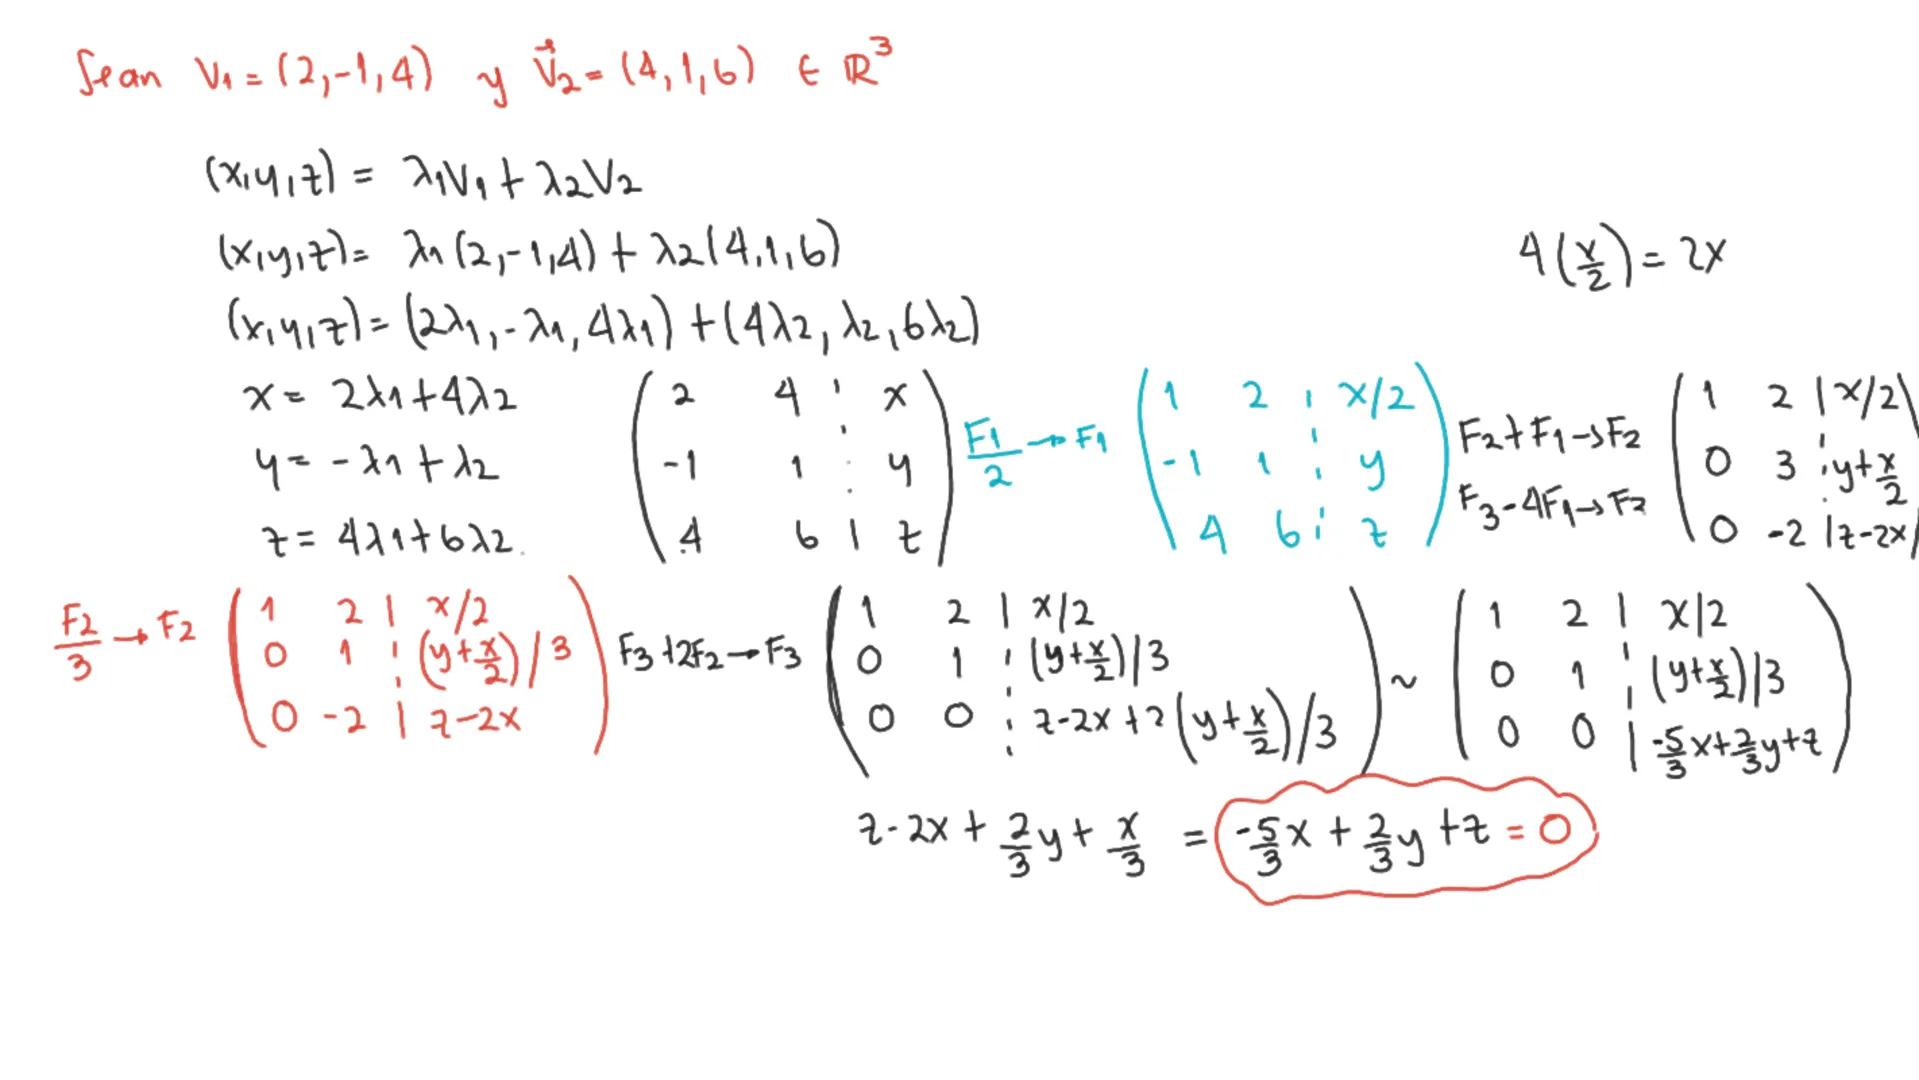 Sean V1 = (2,-1,4) y V⃗2 = (4,1,6) ∈ ℝ³
(x,y,z) = λ1V1 + λ2V2
(x,y,z) = λ1(2,-1,4) + λ2(4,1,6)
4(x/2) = 2x
(x,y,z) = (2λ1,-λ1,4λ1) + (4λ2,λ2,6λ2)
x = 2λ1+4λ2
y = -λ1+λ2
z = 4λ1+6λ2.
( 2 4 ¦ x
-1 1 ¦ y
4 6 | z )
F1/2 → F1
( 1 2 ¦ x/2
-1 1 ¦ y
4 6 ¦ z )
F2+F1→F2
F3-4F1→F2
( 1 2 | x/2
0 3 ¦ y+x/2
0 -2 | z-2x )
F2/3 → F2
( 1 2 | x/2
0 1 ¦ (y+x/2)/3
0 -2 | z-2x )
F3+2F2→F3
( 1 2 | x/2
0 1 ¦ (y+x/2)/3
0 0 ¦ z-2x+2(y+x/2)/3 )
~
( 1 2 | x/2
0 1 ¦ (y+x/2)/3
0 0 | -5/3x+2/3y+z )
z-2x + 2/3y + x/3 = -5/3x + 2/3y + z = 0